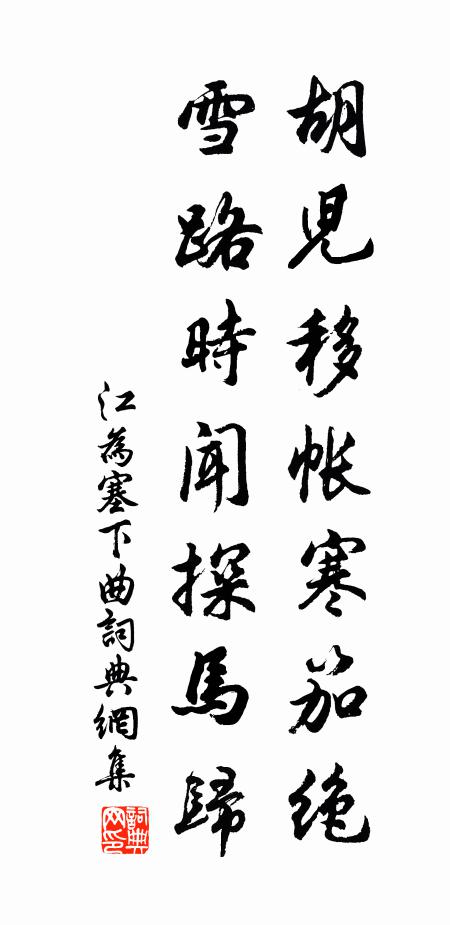 胡兒移帐寒笳絶
雪路時聞探馬歸
江為塞下曲詞典網集
詞典网印